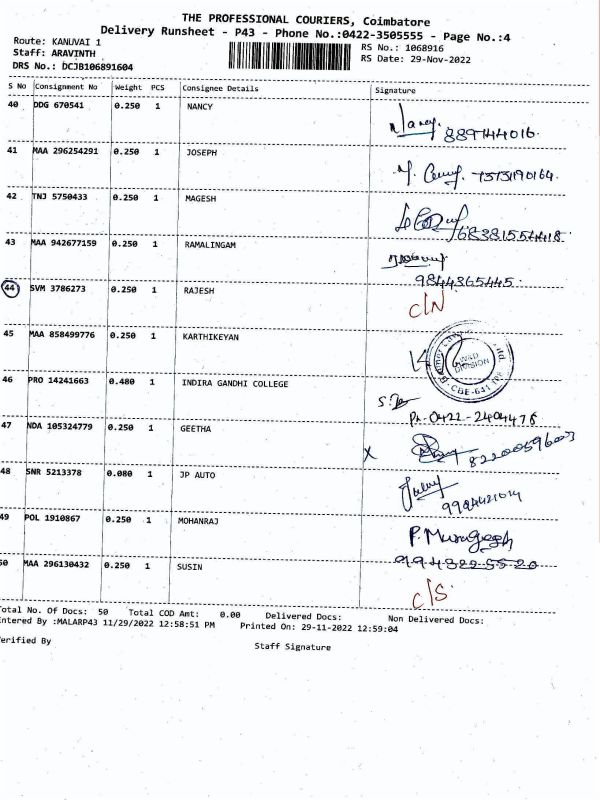 THE PROFESSIONAL COURIERS, Coimbatore
Delivery Runsheet - P43 - Phone No.:0422-3505555 - Page No.:4
Route: KANUVAI 1
Staff: ARAVINTH
DRS No.: DCJB106891604
RS No.: 1068916
RS Date: 29-Nov-2022
S No Consignment No Weight PCS Consignee Details Signature
40 DDG 670541 0.250 1 NANCY
Nancy. 889144016.
41 MAA 296254291 0.250 1 JOSEPH
7373190164.
42 TNJ 5750433 0.250 1 MAGESH
68381554418
43 MAA 942677159 0.250 1 RAMALINGAM
9844365445
44 SVM 3786273 0.250 1 RAJESH
C/N
45 MAA 858499776 0.250 1 KARTHIKEYAN
DIVISION
CBE-641
46 PRO 14241663 0.480 1 INDIRA GANDHI COLLEGE
Ph-0422-2404476
47 NDA 105324779 0.250 1 GEETHA
X 8220059603
48 SNR 5213378 0.080 1 JP AUTO
49 POL 1910867 0.250 1 MOHANRAJ
P. Murugesh
994322 55 20
50 MAA 296130432 0.250 1 SUSIN
C/S.
Total No. Of Docs: 50 Total COD Amt: 0.00 Delivered Docs: Non Delivered Docs:
Entered By :MALARP43 11/29/2022 12:58:51 PM Printed On: 29-11-2022 12:59:04
Verified By
Staff Signature